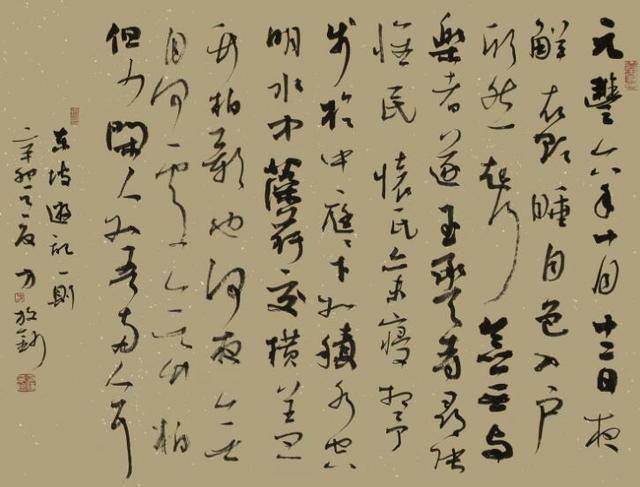 元豐六年十月十二日夜
解衣欲睡月色入户
欣然起行念無与
樂者遂至承天寺尋張
懷民懷民亦未寢相与
步於中庭庭下如積水空
明水中藻荇交橫蓋
竹柏影也何夜無
月何處無竹柏
但少閑人如吾兩人耳
東坡遊記一則
辛卯之夏